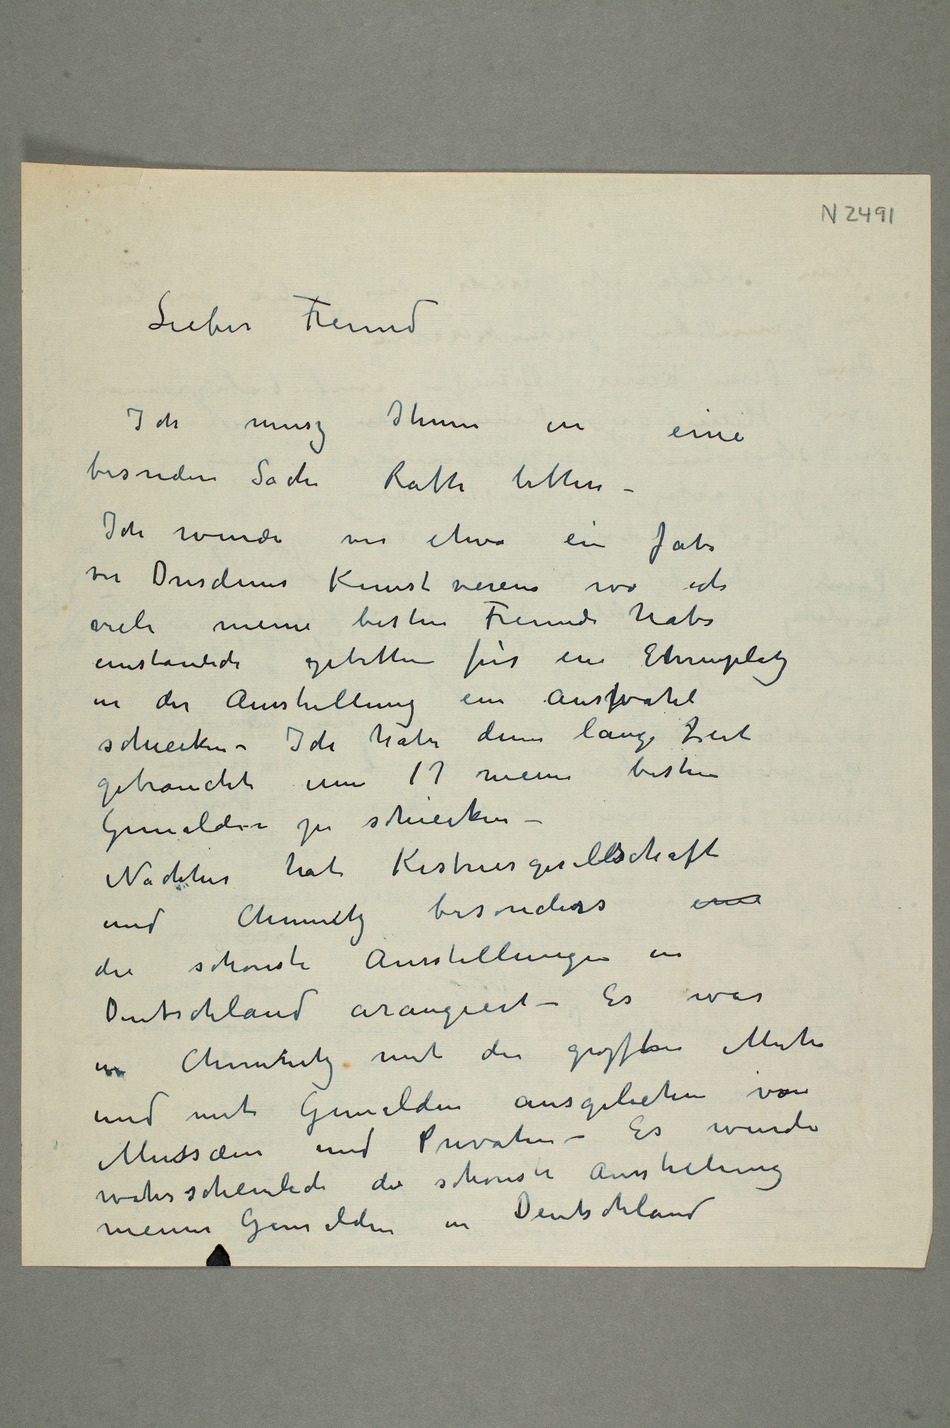 N 2491
Lieber Freund
Ich musz Ihnen in eine
besondere Sache Rathe bitten –
Ich wurde vor etwa ein Jahr
vor Dresdener Kunstverein wo ich
viele meine besten Freunde habe
einstandich gebitten für ein Ehrenplatz
in der Ausstellung ein Auswahl
schicken – Ich habe denn lange Zeit
gebraucht um 17 meine besten
Gemälden zu schicken –
Nachher hat Kestnergesellschaft
und Chemnitz besonders eine
die schönste Ausstellungen in
Deutschland arangiert – Es war
in Chemnitz mit der grözften Muhe
und mit Gemälden ausgeliehen von
Mussæen und Privaten – Es wurde
wahrscheinlich die schönste Ausstellung
meiner Gemälden in Deutschland